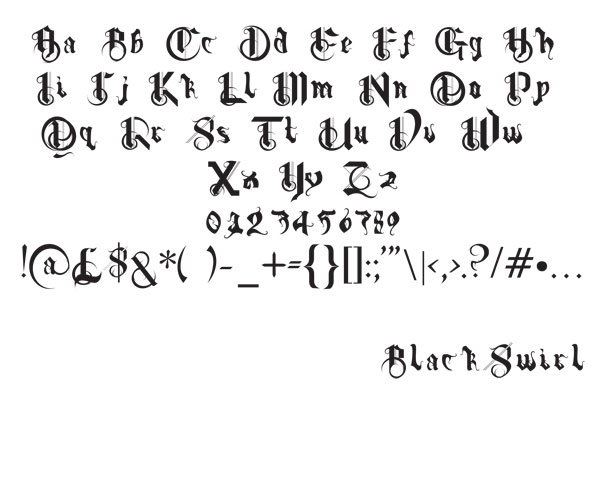 Aa Bb Cc Dd Ee Ff Gg Hh
Ii Jj Kk Ll Mm Nn Oo Pp
Qq Rr Ss Tt Uu Vv Ww
Xx Yy Zz
0123456789
!@£$&*( )-_+={}[]:;'"\|<,>.?/#•…
Black Swirl